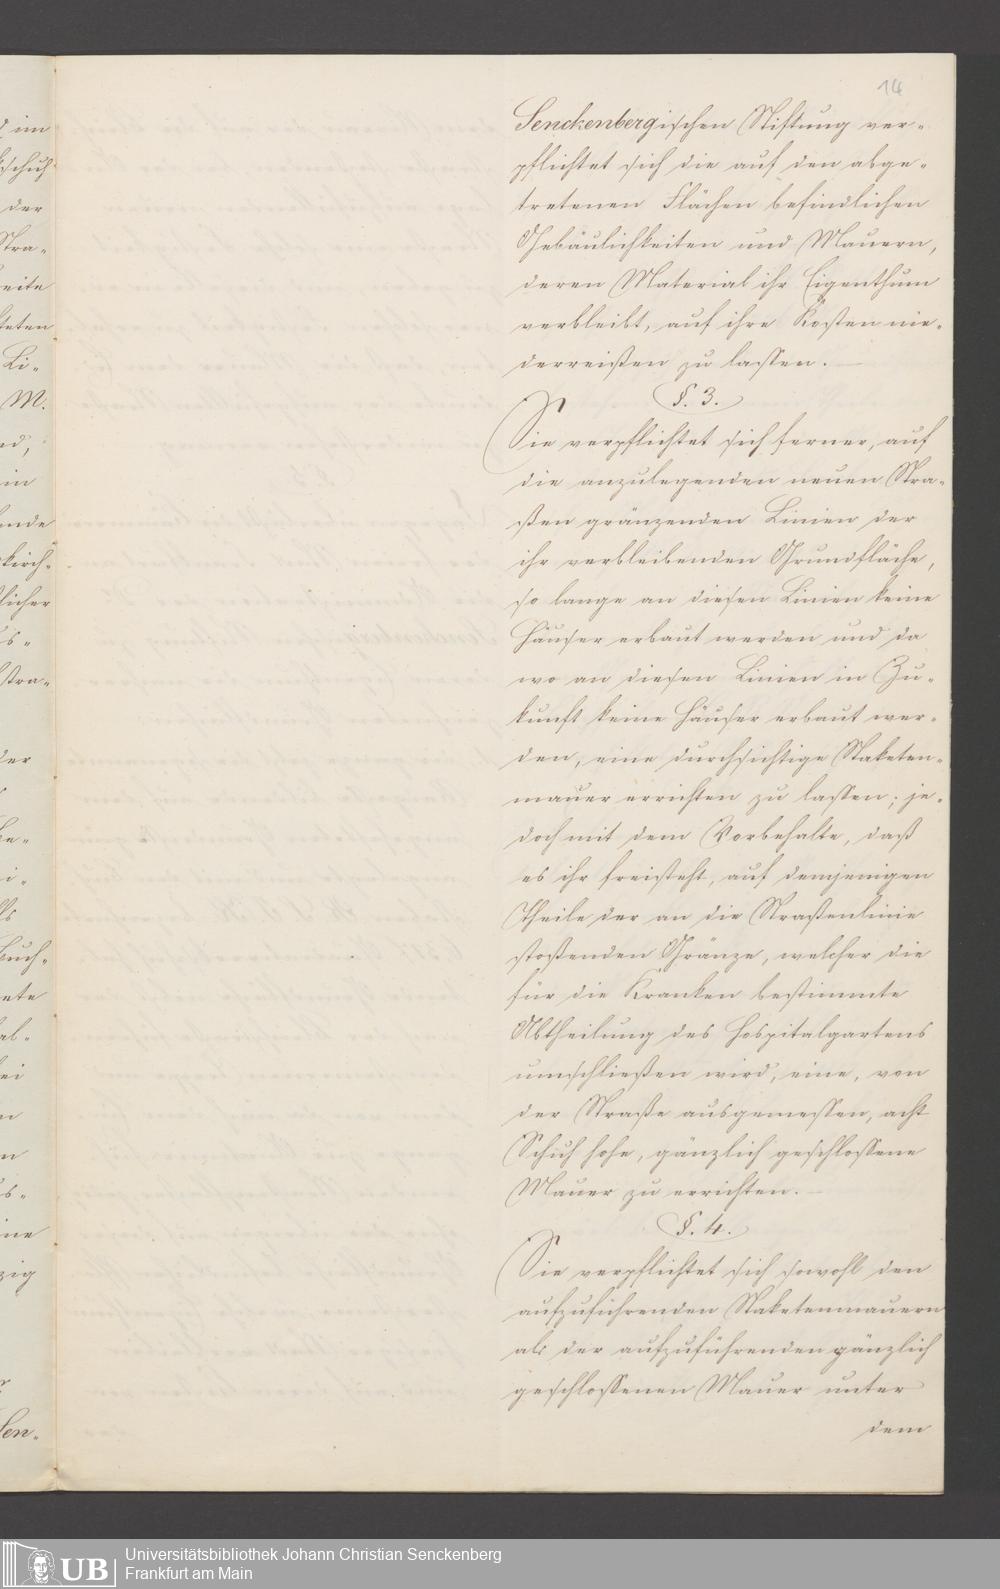 14
Senckenbergischen Stiftung ver-
pflichtet sich die auf den abge-
tretenen Flächen befindlichen
Gebäulichkeiten und Mauern,
deren Material ihr Eigenthum
verbleibt, auf ihre Kosten nie-
derreißen zu lassen.
§. 3.
Sie verpflichtet sich ferner, auf
die anzulegenden neuen Stra-
ßen gränzenden Linien der
ihr verbleibenden Grundfläche,
so lange an diesen Linien keine
Häuser erbaut werden und da
wo an diesen Linien in Zu-
kunft keine Häuser erbaut wer-
den, eine durchsichtige Staketen-
mauer errichten zu lassen; je-
doch mit dem Vorbehalte, daß
es ihr freisteht, auf demjenigen
Theile der an die Straßenlinie
stoßenden Gränze, welcher die
für die Kranken bestimmte
Abtheilung des Hospitalgartens
umschließen wird, eine, von
der Straße ausgemessen, acht
Schuh hohe, gänzlich geschlossene
Mauer zu errichten.
§. 4.
Sie verpflichtet sich sowohl den
aufzuführenden Staketenmauern
als der aufzuführenden gänzlich
geschlossenen Mauer unter
dem
im
schuh
der
Stra-
eite
teten
Li-
M.
nd,
in
ende
kirch-
licher
us-
stra-
der
Be-
i-
Buch-
ete
ab-
ei
n
us-
ine
zig
Sen-
UB
Universitätsbibliothek Johann Christian Senckenberg
Frankfurt am Main